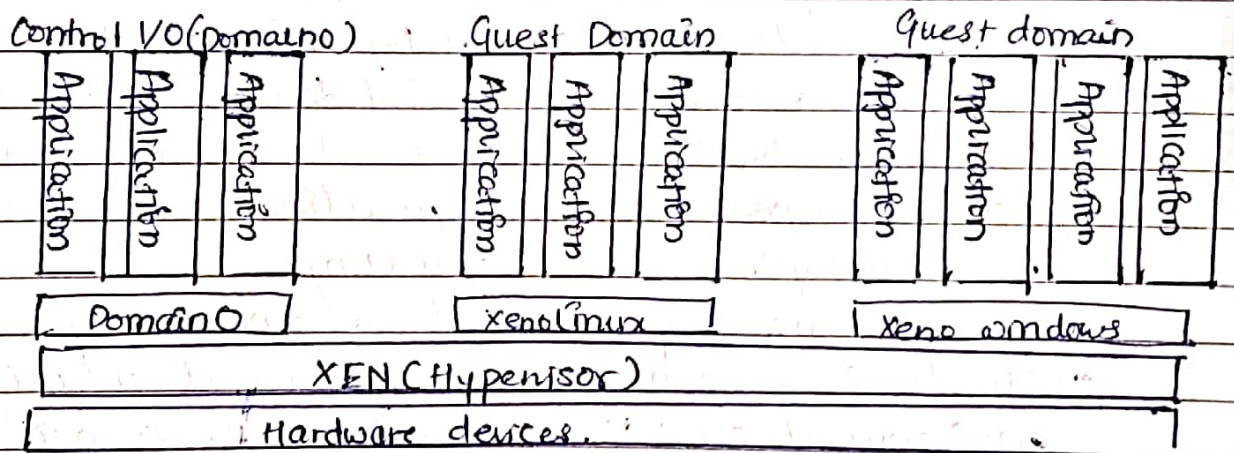 Control I/O (Domain0) Guest Domain Guest domain
Application Application Application Application Application Application Application Application Application Application
Domain0 xenolinux xeno windows
XEN (Hypervisor)
Hardware devices.